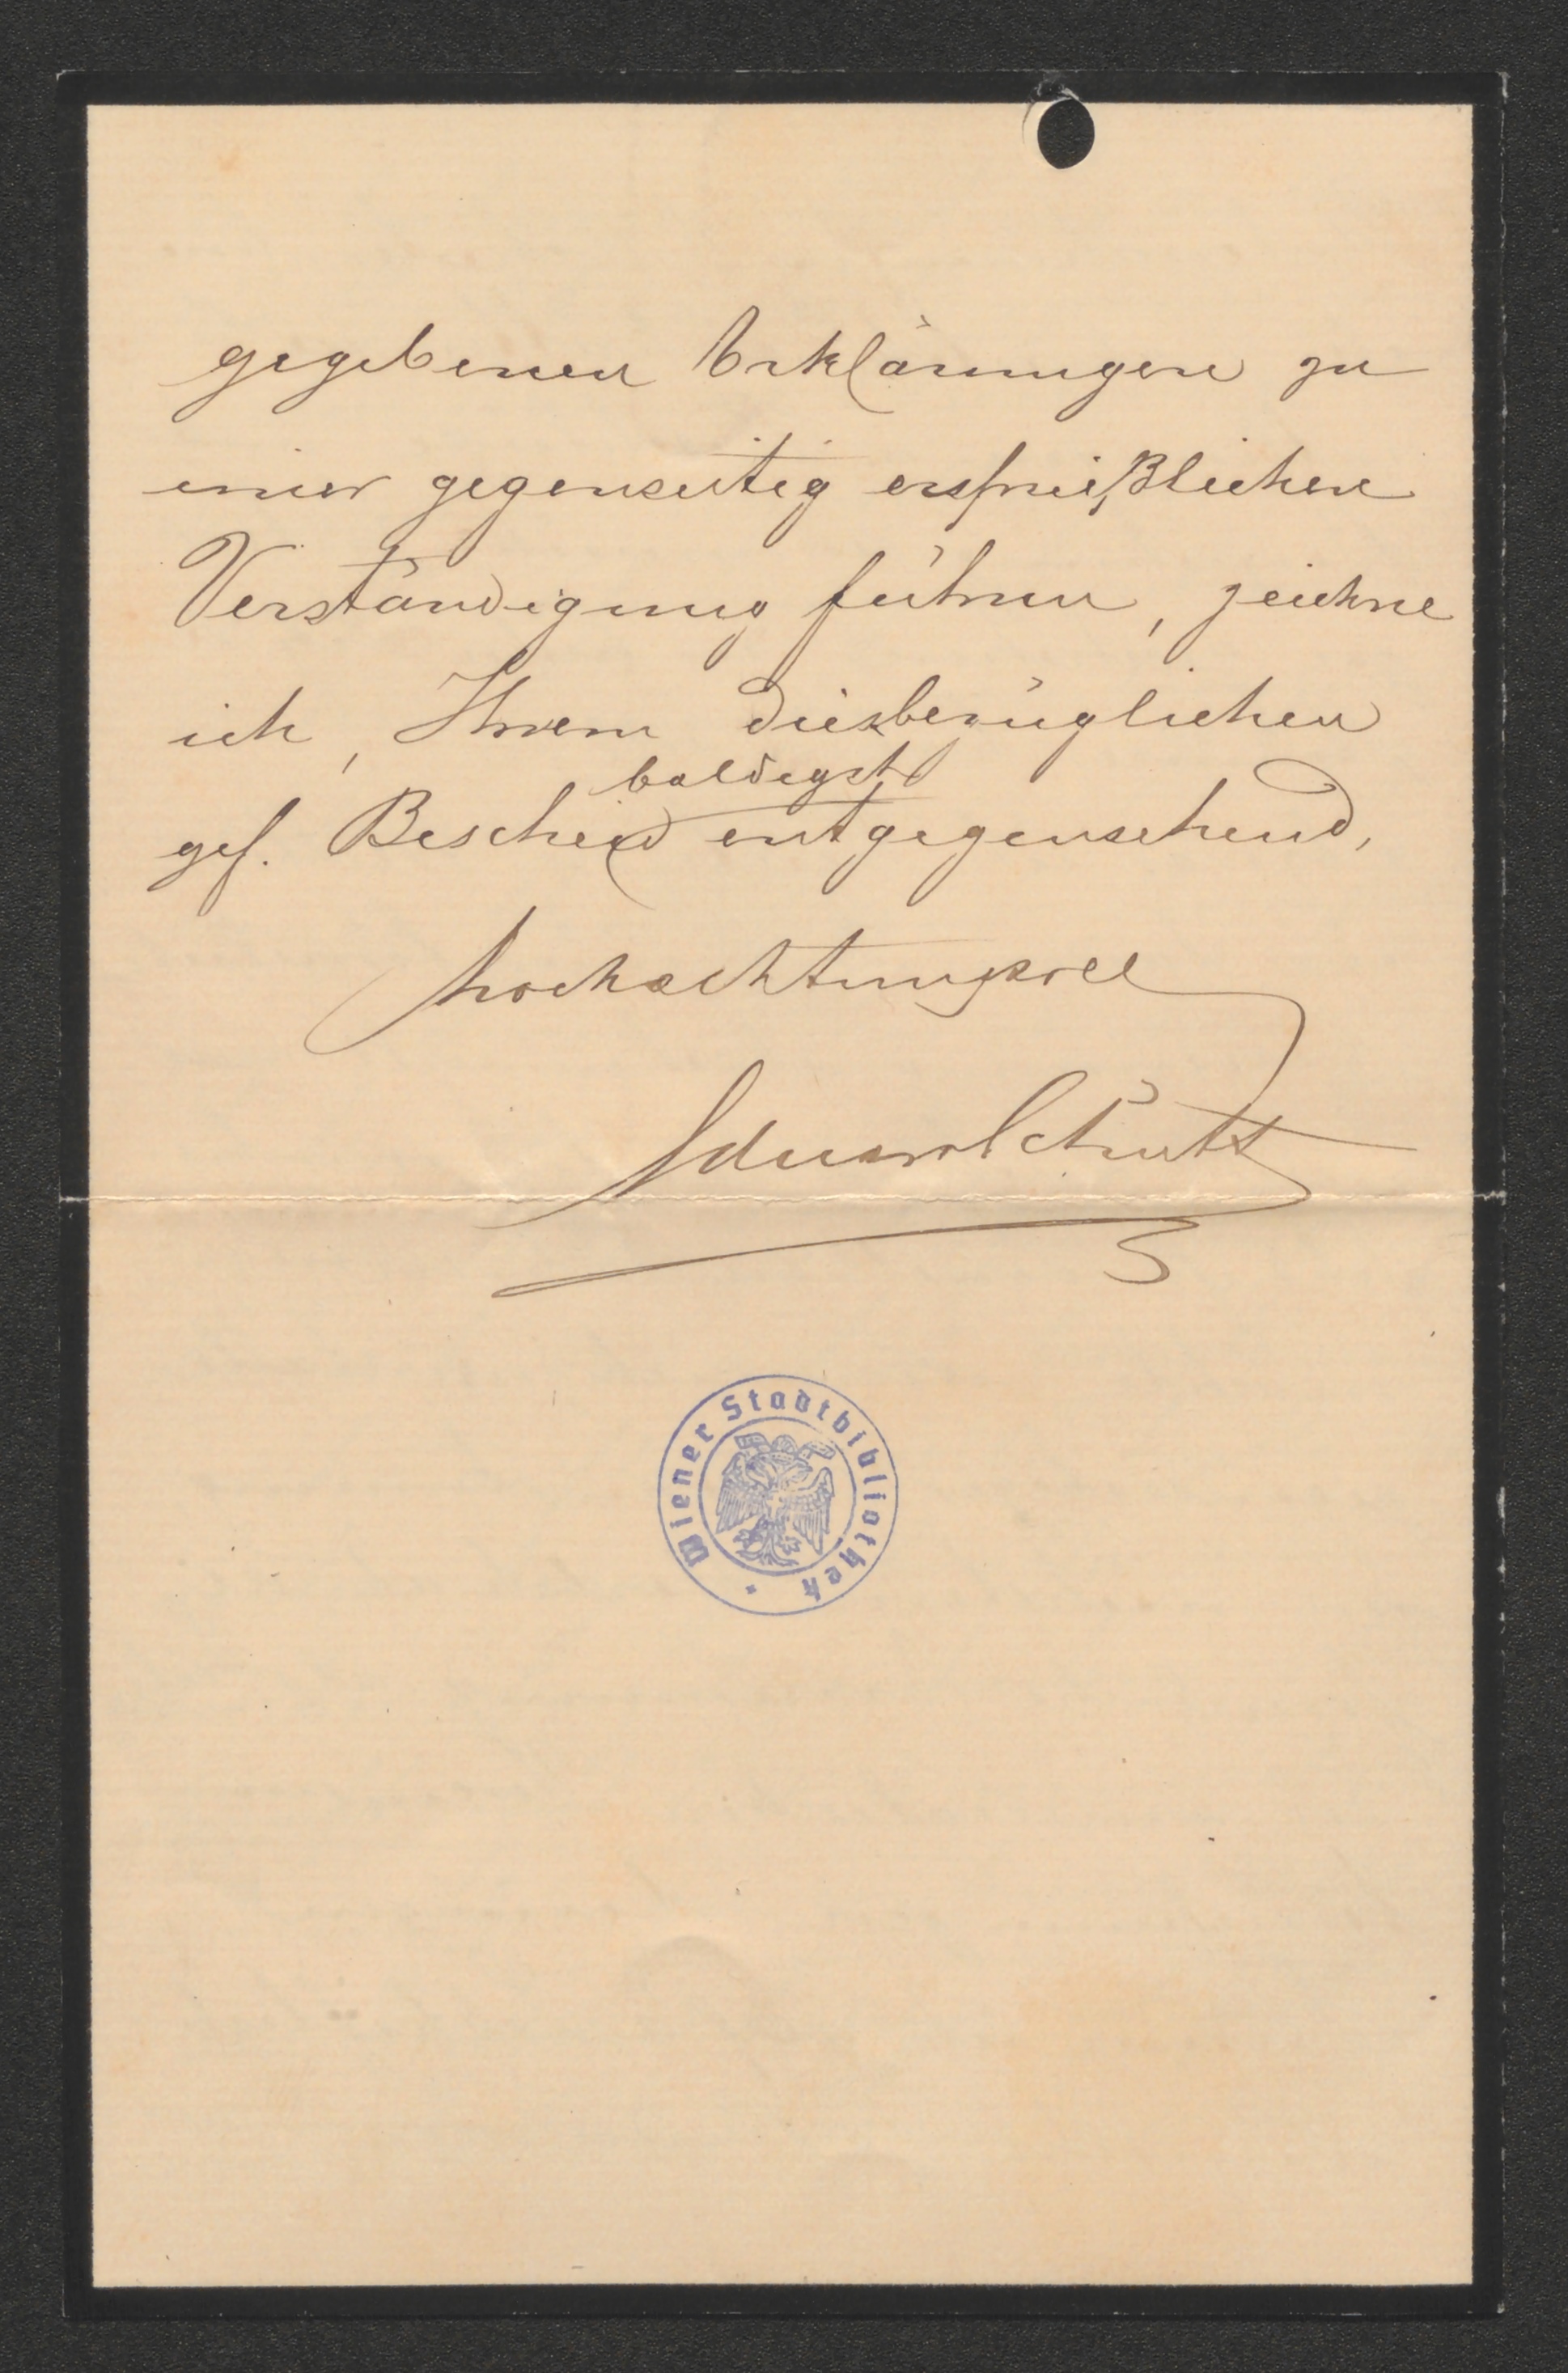 gegebenen Erklärungen zu
einer gegenseitig ersprießlichen
Verständigung führen, zeichne
ich, Ihrem diesbezüglichen
baldigst
gef. Bescheid entgegensehend,
hochachtungsvoll
Eduard Schütt
Wiener Stadtbibliothek